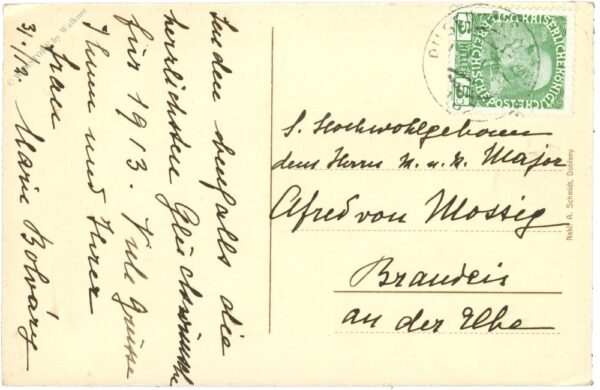 Senden ebenfalls die
herzlichsten Glückwünsche
für 1913. Viele Grüsse
Ihnen und Ihrer
Frau
Marie Bolváry
31./12.
S. Hochwohlgeboren
dem Herrn K. u. K. Major
Alfred von Mossig
Brandeis
an der Elbe
Nakl. A. Schmidt, Dobřany
KAISERLICHE KÖNIGL
ÖSTERREICHISCHE POST
5
5
by Walkner